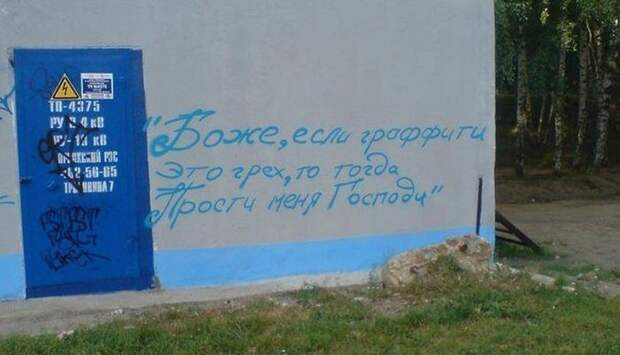 ТП-4375
кВ
кВ
РЭС
42-56-65
7
"Боже, если граффити
Это грех, то тогда
Прости меня Господи"